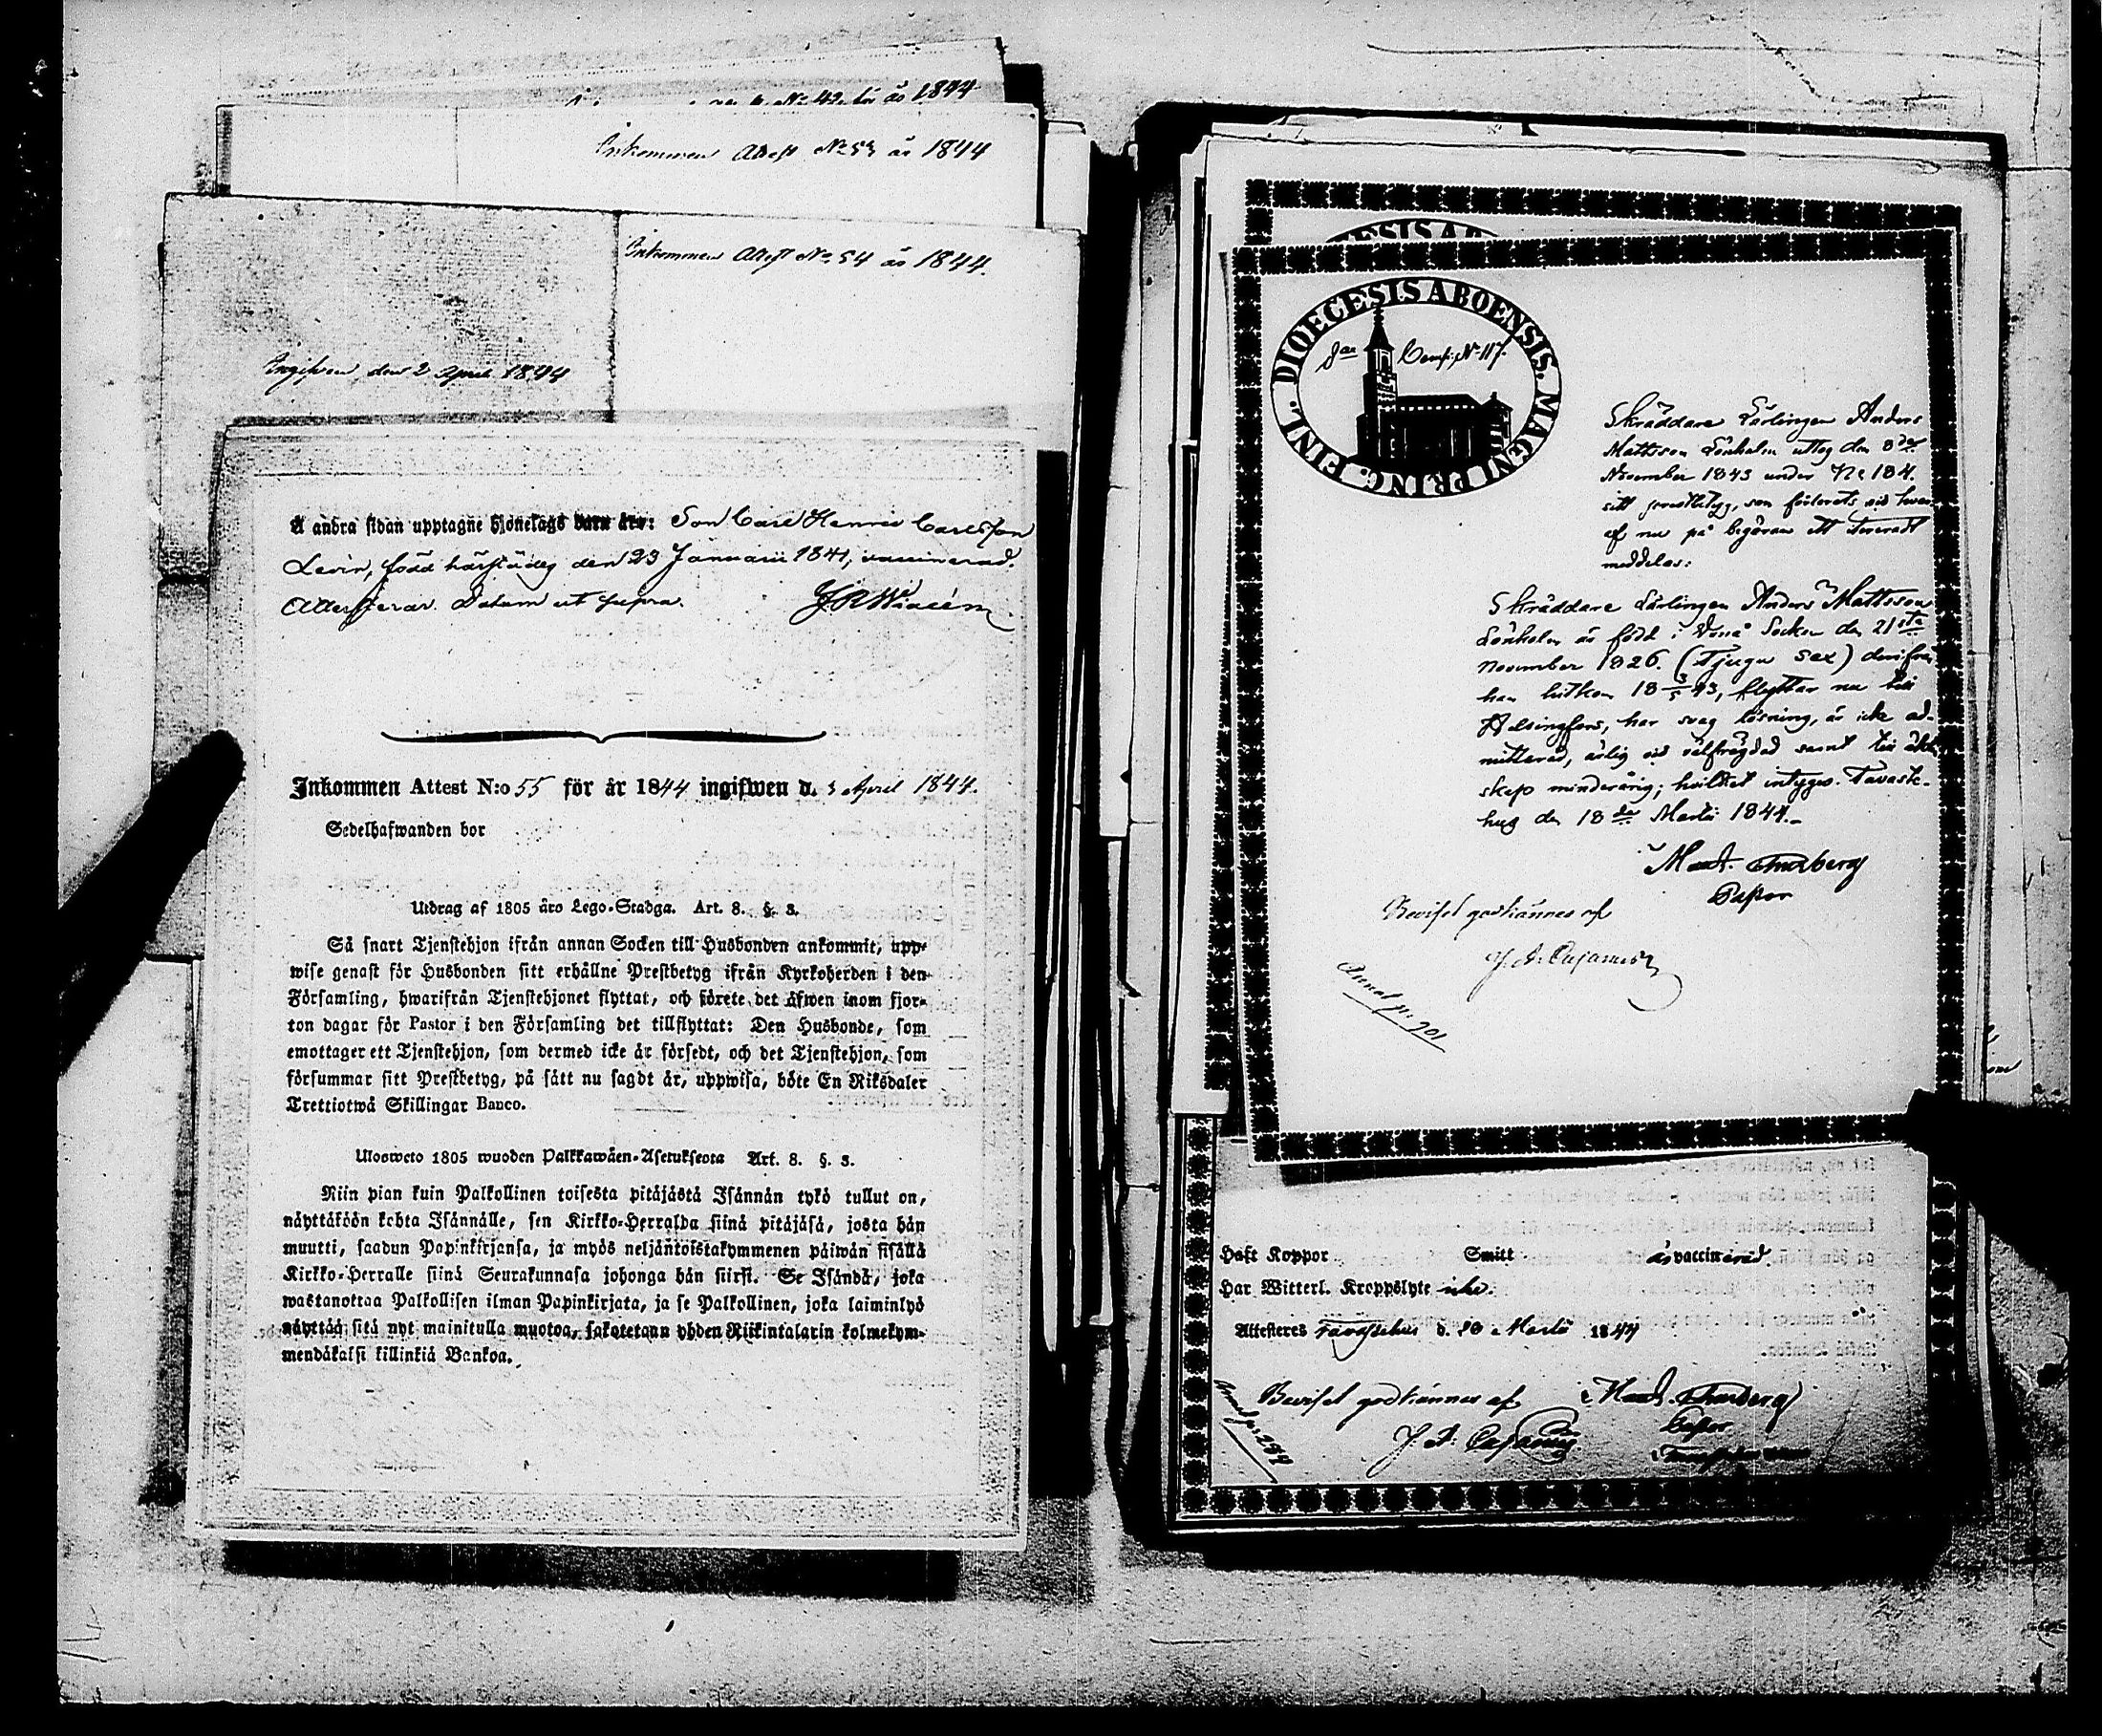 No 42 för år 1844
Inkommen Attest No 53 år 1844
Inkommen Attest No 54 år 1844.
Ingifven den 2 April 1844
Å andra sidan upptagne hjonelags barn äro: Son Carl Henric Carlsson
Levin, född härstädes den 23 Januarii 1841, vaccinerad.
Attesterar. Datum ut supra.
Inkommen Attest N:o 55 för år 1844 ingifwen d. 3 April 1844.
Sedelhafwanden bor
Utdrag af 1805 års Lego-Stadga. Art. 8. §. 3.
Så snart Tjenstehjon ifrån annan Socken till Husbonden ankommit, upp-
wise genast för Husbonden sitt erhållne Prestbetyg ifrån Kyrkoherden i den
Församling, hwarifrån Tjenstehjonet flyttat, och förete det äfwen inom fjor-
ton dagar för Pastor i den Församling det tillflyttat: Den Husbonde, som
emottager ett Tjenstehjon, som dermed icke är försedt, och det Tjenstehjon, som
försummar sitt Prestbetyg, på sätt nu sagdt är, uppwisa, böte En Riksdaler
Trettiotwå Skillingar Banco.
Ulosweto 1805 wuoden Palkkawäen-Asetuksesta Art. 8. §. 3.
Niin pian kuin Palkollinen toisesta pitäjästä Isännän tykö tullut on,
näyttäköön kohta Isännälle, sen Kirkko-Herralda siinä pitäjäsä, josta hän
muutti, saadun Papinkirjansa, ja myös neljäntoistakymmenen päiwän sisällä
Kirkko-Herralle siinä Seurakunnasa johonga hän siirsi. Se Isändä, joka
wastanottaa Palkollisen ilman Papinkirjata, ja se Palkollinen, joka laiminlyö
näyttää sitä nyt mainitulla muotoa, sakotetaan yhden Riikintalarin kolmekym-
mendäkaksi killinkiä Bankoa.
DIOECESIS ABOENSIS. MAGNI PRINC. FINL.
Comp. No 117.
Skräddare Lärlingen Anders
Mattsson Lönholm uttog den 8de
November 1843 under No 184.
sitt prestbetyg, som förlorats, vid hvars
af nu på begäran ett förnyadt
meddelas:
Skräddare Lärlingen Anders Mattsson
Lönholm är född i Vånå Socken den 21sta
November 1826. (Tjugu sex) derifrån
han hitkom 18 3/5 43, flyttar nu till
Helsingfors, har svag läsning, är icke ad-
mitterad, ärlig och välfrägdad samt till äkten-
skap minderårig; hvilket intygas. Tavaste-
hus den 18de Martii 1844.
Pastor
Beviset godkännes af
J. A. Cajanus
Annot. p. 901
Haft Koppor Smitt är vaccinerad.
Har Witterl. Kroppslyte icke.
Attesteres Tavastehus d. 20 Martii 1844
Beviset godkännes af
J. A. Cajanus
Pastor